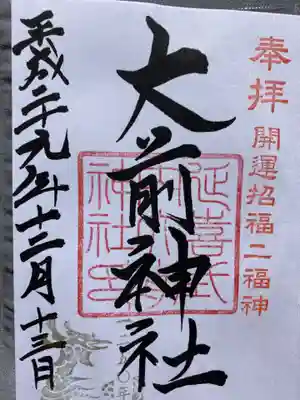 奉拝
開運招福二福神
大前神社
延喜式内大前神社印
平成二十九年十二月十三日